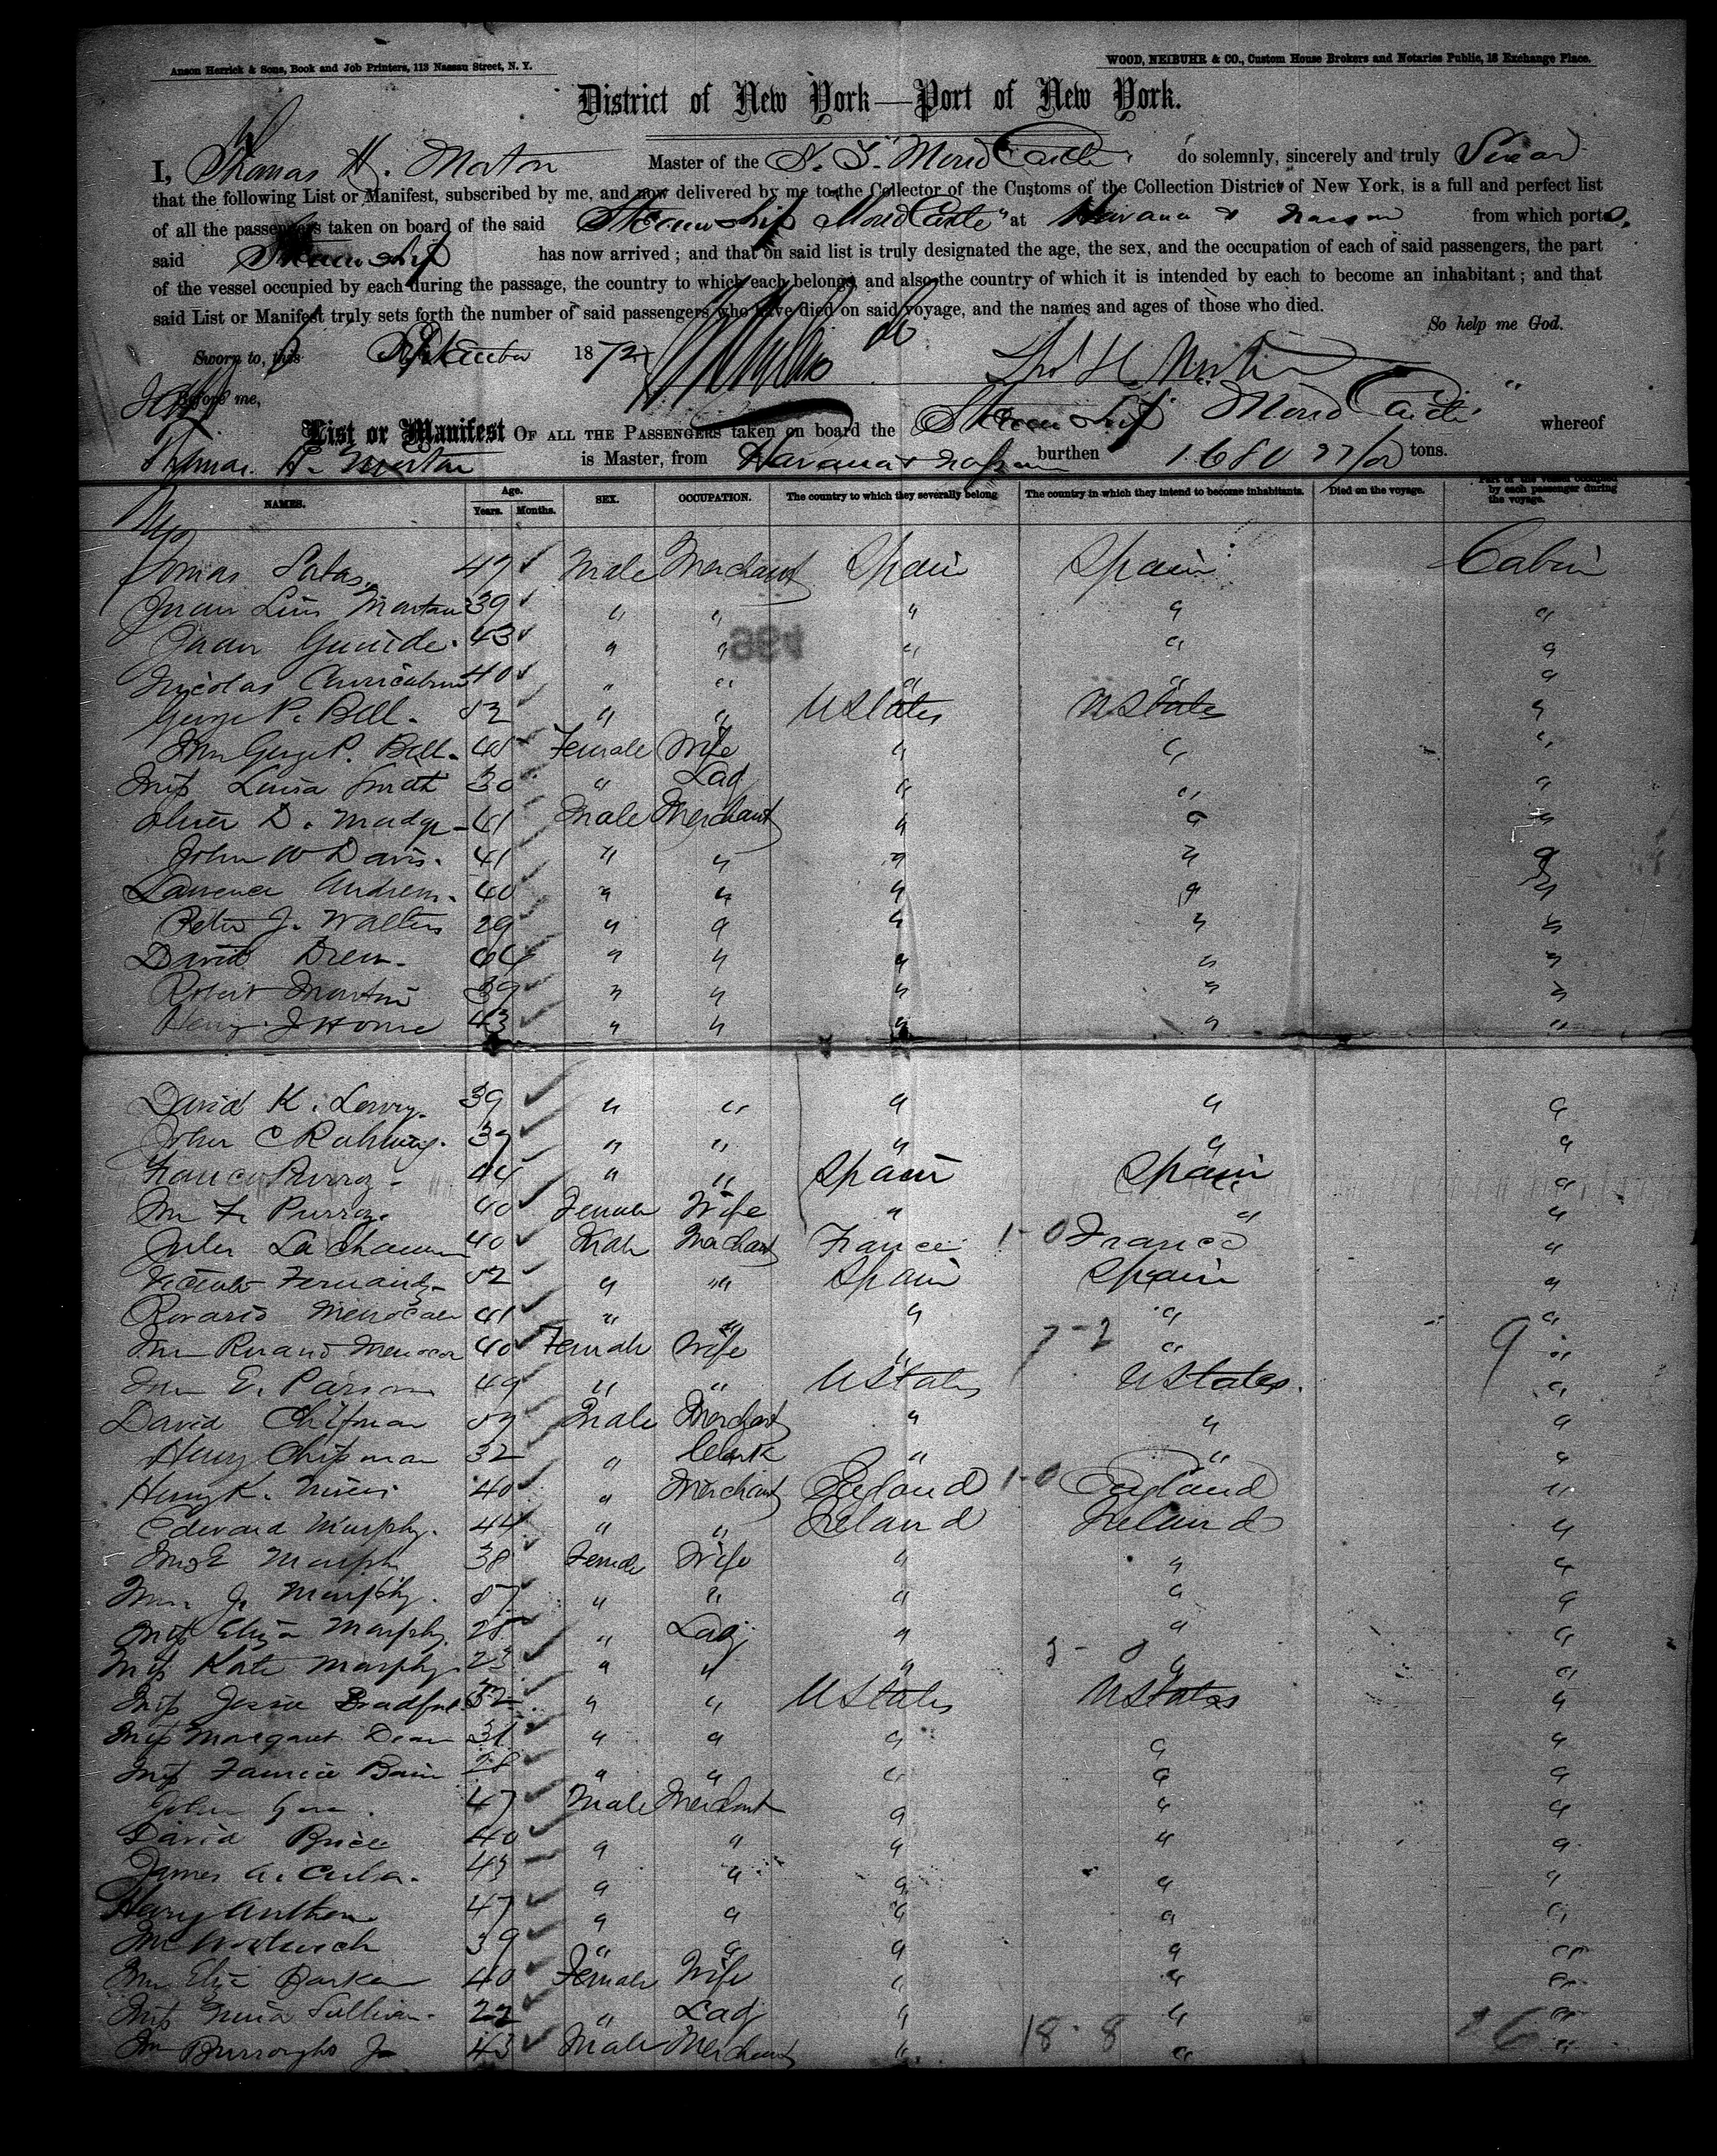 Anson Herrick & Sons, Book and Job Printers, 113 Nassau Street, N. Y.
WOOD, NEIBUHR & CO., Custom House Brokers and Notaries Public, 18 Exchange Place.
District of New York—Port of New York.
I, Thomas H. Morton Master of the S. S. "Morro Castle" do solemnly, sincerely and truly Swear
that the following List or Manifest, subscribed by me, and now delivered by me to the Collector of the Customs of the Collection District of New York, is a full and perfect list
of all the passengers taken on board of the said Steam Ship Morro Castle" at Havana & Nassau from which ports,
said Steam Ship has now arrived ; and that on said list is truly designated the age, the sex, and the occupation of each of said passengers, the part
of the vessel occupied by each during the passage, the country to which each belongs, and also the country of which it is intended by each to become an inhabitant ; and that
said List or Manifest truly sets forth the number of said passengers who have died on said voyage, and the names and ages of those who died.
So help me God.
Sworn to, this September 1872 Thos H Morton
Before me,
List or Manifest OF ALL THE PASSENGERS taken on board the Steam Ship Morro Castle" whereof
Thomas H. Morton is Master, from Havana & Nassau burthen 1680 tons.
NAMES. Age. Years. Months. SEX. OCCUPATION. The country to which they severally belong The country in which they intend to become inhabitants. Died on the voyage. Part of the vessel occupied by each passenger during the voyage.
Tomas 47 Male Merchant Spain Spain Cabin
Juan Luis 39 " " " " "
Juan 43 " " " " "
496
Nicolas 40 " " " " "
George P. Bell. 52 " " U States U States "
Mrs George P. Bell. Female Wife " " "
Miss Louisa Smith 30 " Lady " " "
Oliver D. Mudge 41 Male Merchant " " "
John W Davis. 41 " " " " "
Lawrence Andrews. 40 " " " " "
Peter J. Walters 29 " " " " "
David Drew. 64 " " " " "
Robert Martin 39 " " " " "
Henry J Horne 43 " " " " "
David K. Lowry. 39 " " " " "
John C 37 " " " " "
44 " " Spain Spain "
Mrs F. 40 Female Wife " " "
Jules 40 Male Merchant France 1-0 France "
52 " " Spain Spain "
Menocal 41 " " " " "
Mrs Menocal 40 Female Wife " 7-2 " 9 "
Mrs E. Parsons 49 " " U States U States. "
David Chipman 59 Male Merchant " " "
Henry Chipman 32 " Clerk " " "
Henry K. 40 " Merchant England 1-0 England "
Edward Murphy. 44 " " Ireland Ireland "
Mrs E Murphy 38 Female Wife " " "
Mrs J. Murphy. 57 " " " " "
Miss Eliza Murphy. 28 " Lady " " "
Miss Kate Murphy. 23 " " " " "
Miss Jessie Bradford 32 " " U States U States "
Miss Margaret Dean 31 " " " " "
Miss Fannie 28 " " " " "
John 47 Male Merchant " " "
David Brice 40 " " " " "
James A. 43 " " " " "
Henry 47 " " " " "
39 " " " " "
Mrs Eliza Barker 40 Female Wife " " "
Miss Sullivan. 22 " Lady " " "
Wm Burroughs Jr 43 Male Merchant " 18-8 " "